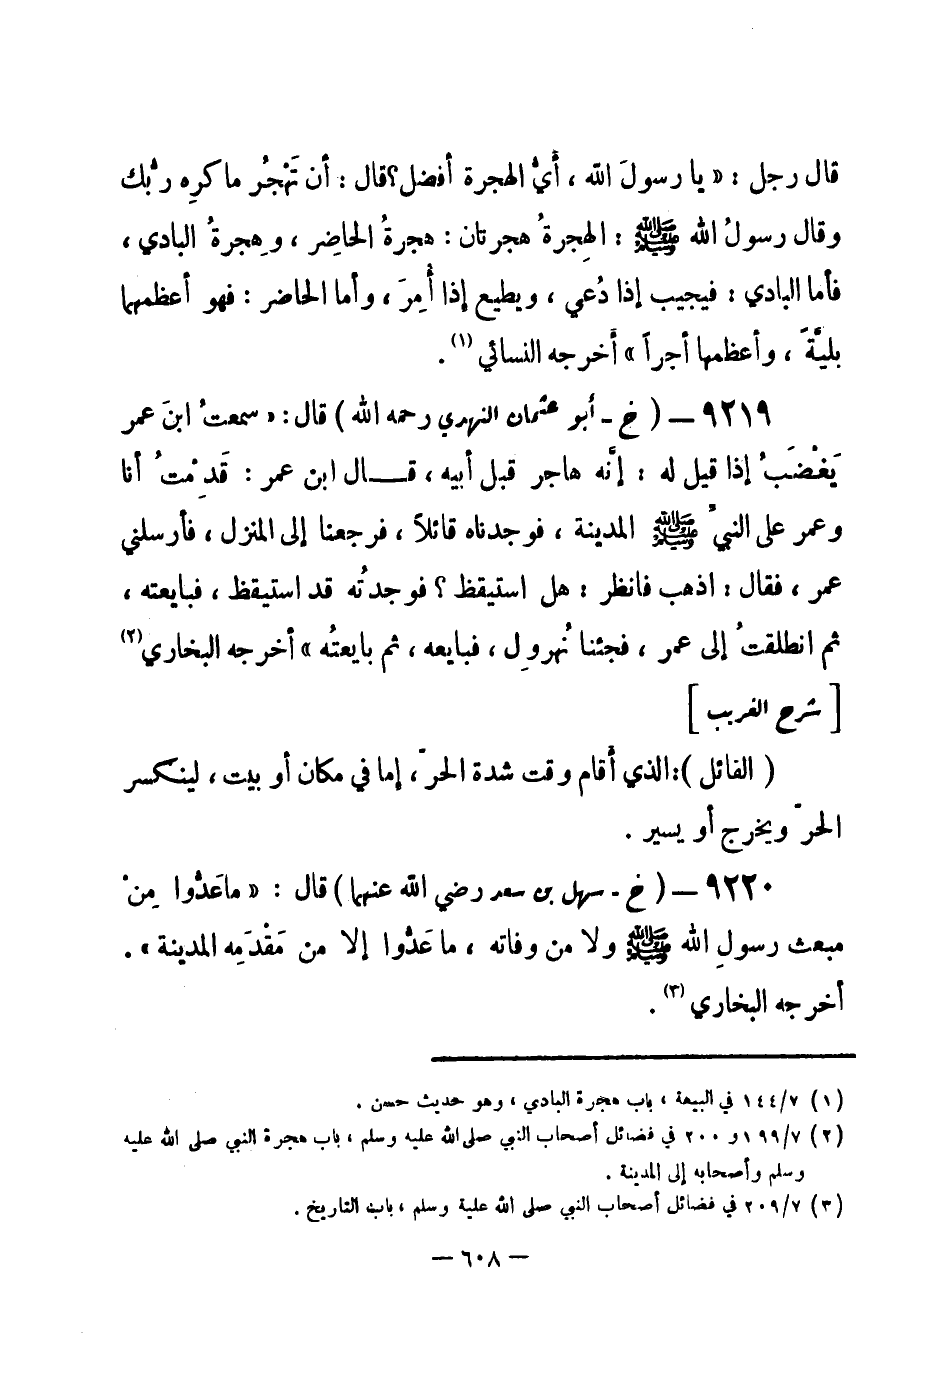 قال رجل : « يا رسولَ الله ، أَيُّ الهجرة أفضل؟ قال : أن تَهْجُر ما كرِه ربُّك
وقال رسولُ الله ﷺ : الهِجرةُ هجرتان : هجرةُ الحاضِر ، وهِجرةُ البادي ،
فأما البادي : فيجيب إذا دُعي ، ويطيع إذا أُمِرَ ، وأما الحاضر : فهو أعظمهما
بليَّةً ، وأعظمها أجراً » أَخرجه النسائي (١) .
٩٢١٩ – ( خ - أبو عثمان النهدي رحمه الله ) قال : « سمعتُ ابنَ عمر
يَغْضَبُ إذا قيل له : إنَّه هاجر قبل أبيه ، قـــال ابن عمر : قَدِمْتُ أنا
وعمر على النبيِّ ﷺ المدينة ، فوجدناه قائلاً ، فرجعنا إلى المنزل ، فأرسلني
عمر ، فقال : اذهب فانظر : هل استيقظ ؟ فوجدتُه قد استيقظ ، فبايعته ،
ثم انطلقتُ إلى عمر ، فجئنا نُهرول ، فبايعه ، ثم بايعتُه » أخرجه البخاري (٢)
[ شرح الغريب ]
( القائل ) : الذي أَقام وقت شدة الحرّ ، إما في مكان أو بيت ، لينكسر
الحرّ ويخرج أو يسير .
٩٢٢٠ – ( خ - سهل بن سعد رضي الله عنهما ) قال : « ماعَدُّوا مِنْ
مبعث رسولِ الله ﷺ ولا من وفاته ، ما عَدُّوا إلا من مَقْدَمِه المدينة » .
أخرجه البخاري (٣) .
(١) ١٤٤/٧ في البيعة ، باب هجرة البادي ، وهو حديث حسن .
(٢) ١٩٩/٧ و ٢٠٠ في فضائل أصحاب النبي صلى الله عليه وسلم ، باب هجرة النبي صلى الله عليه
وسلم وأصحابه إلى المدينة .
(٣) ٢٠٩/٧ في فضائل أصحاب النبي صلى الله علية وسلم ، باب التاريخ .
– ٦٠٨ –